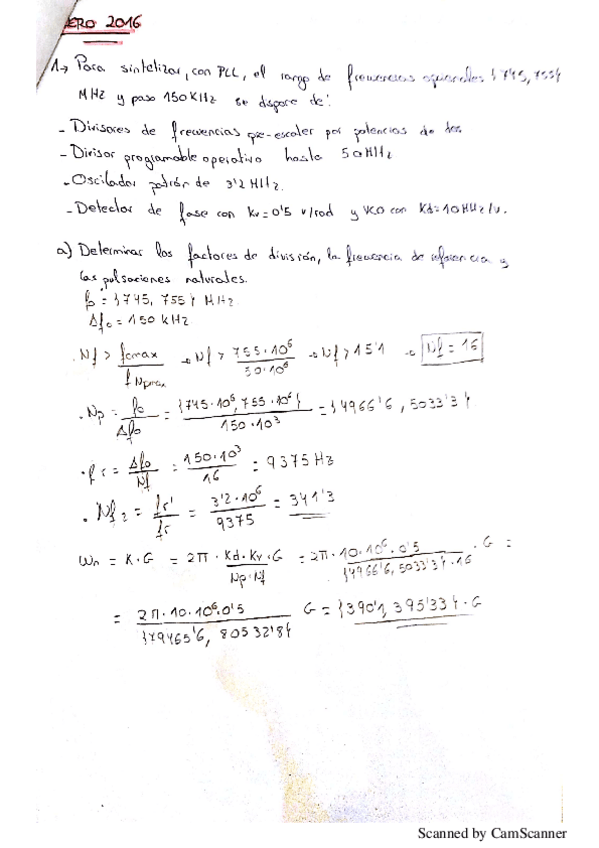 ERO 2016
1→ Para sintetizar, con PLL, el rango de frecuencias {745, 755}
MHz y paso 150 KHz se dispone de:
- Divisores de frecuencias pre-escaler por potencias de dos
- Divisor programable operativo hasta 50MHz
- Oscilador patrón de 3'2 MHz.
- Detector de fase con Kv=0'5 v/rad y VCO con Kd=10MHz/v.
a) Determinar los factores de división, la frecuencia de referencia y
las pulsaciones naturales.
fo = {745, 755} MHz
Δfo = 150 KHz
· Nf > fcmax / fNpmax → Nf > 755·10^6 / 50·10^6 → Nf > 15'1 → Nf = 16
· Np = fo / Δfo = {745·10^6, 755·10^6} / 150·10^3 = {4966'6, 5033'3}
· fr = Δfo / Nf = 150·10^3 / 16 = 9375 Hz
· Nf2 = fr' / fr = 3'2·10^6 / 9375 = 341'3
Wn = K·G = 2π · Kd·Kv·G / Np·Nf = 2π·10·10^6·0'5 / {4966'6, 5033'3}·16 · G =
= 2π·10·10^6·0'5 / {79465'6, 80532'8} G = {390'1, 395'33}·G
Scanned by CamScanner